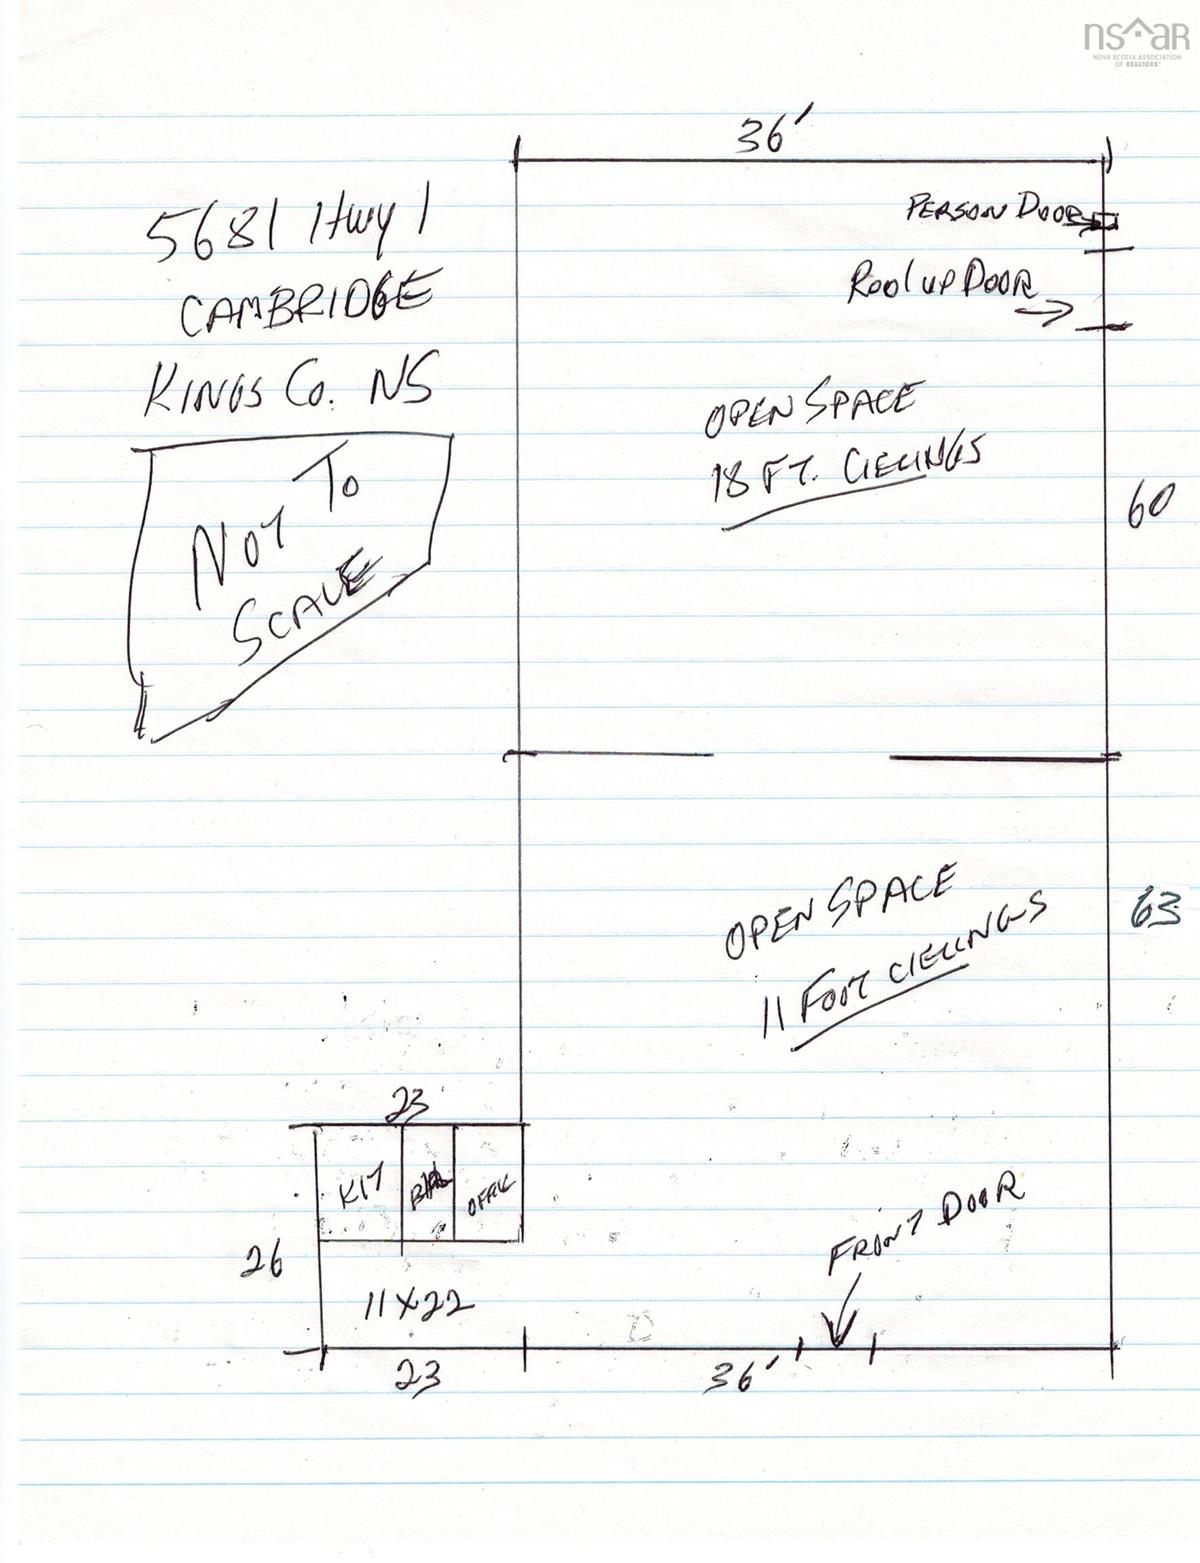 nsar
NOVA SCOTIA ASSOCIATION
OF REALTORS®
36'
5681 Hwy 1
CAMBRIDGE
KINGS CO. NS
NOT TO
SCALE
PERSON DOOR
Rool up DOOR
OPEN SPACE
18 FT. CIELINGS
60
OPEN SPACE
11 FOOT CIELINGS
63
23
KIT
OFFIC
26
11 X 22
FRONT DOOR
23
36'